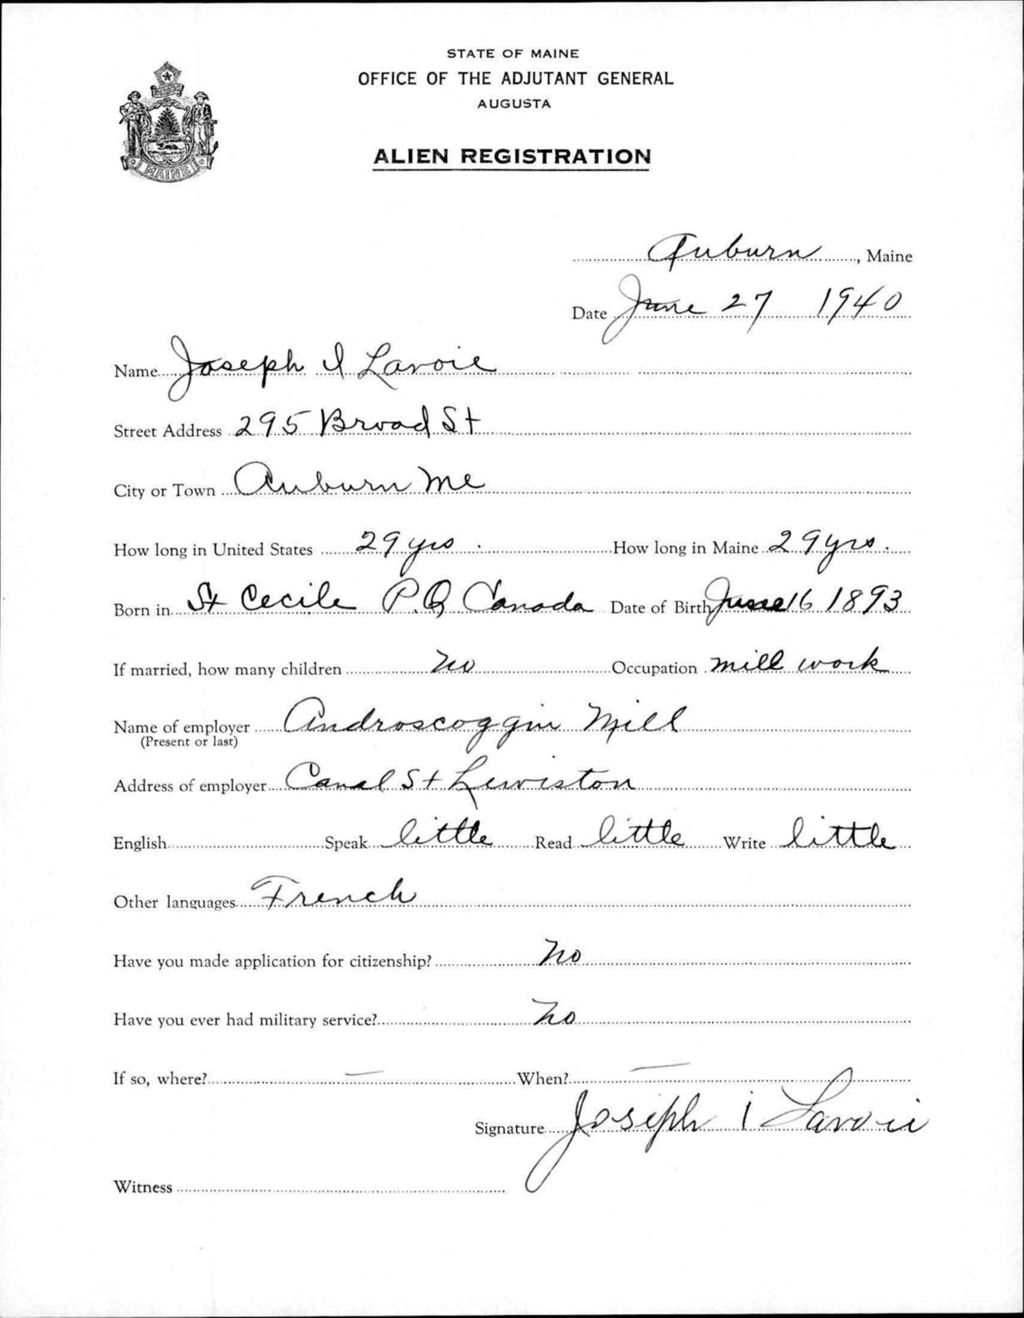 STATE OF MAINE
OFFICE OF THE ADJUTANT GENERAL
AUGUSTA
ALIEN REGISTRATION
MAINE
Auburn, Maine
Date June 27 1940
Name Joseph I Lavoie
Street Address 295 Broad St
City or Town Auburn Me
How long in United States 29 yrs. How long in Maine 29 yrs.
Born in St Cecile P.Q Canada Date of Birth June 16 1893
If married, how many children no Occupation mill work
Name of employer Androscoggin Mill
(Present or last)
Address of employer Canal St Lewiston
English Speak little Read little Write little
Other languages French
Have you made application for citizenship? No
Have you ever had military service? No
If so, where? — When? —
Signature Joseph i Lavoii
Witness